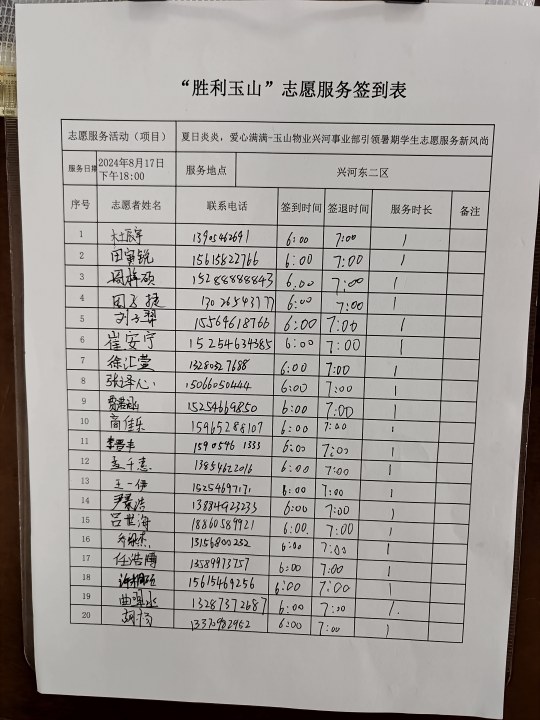 “胜利玉山”志愿服务签到表
志愿服务活动（项目） 夏日炎炎，爱心满满-玉山物业兴河事业部引领暑期学生志愿服务新风尚
服务日期 2024年8月17日下午18:00 服务地点 兴河东二区
序号 志愿者姓名 联系电话 签到时间 签退时间 服务时长 备注
1 杜辰宇 13905462691 6:00 7:00 1
2 田寅锐 15615822766 6:00 7:00 1
3 周梓硕 15288888843 6:00 7:00 1
4 田子捷 13026543777 6:00 7:00 1
5 刘子羿 15564618766 6:00 7:00 1
6 崔安宁 15254634385 6:00 7:00 1
7 徐汇萱 13280327688 6:00 7:00 1
8 张泽心 15066050444 6:00 7:00 1
9 15254669850 6:00 7:00 1
10 商佳乐 15965288107 6:00 7:00 1
11 1590546 1333 6:00 7:00 1
12 孟千惠 13854622016 6:00 7:00 1
13 王一伊 15254697171 6:00 7:00 1
14 尹素浩 13884923233 6:00 7:00 1
15 吕世海 18860589921 6:00 7:00 1
16 13156800232 6:00 7:00 1
17 任浩腾 13589973757 6:00 7:00 1
18 15615469256 6:00 7:00 1
19 13287372687 6:00 7:00 1
20 胡杨 13370982952 6:00 7:00 1